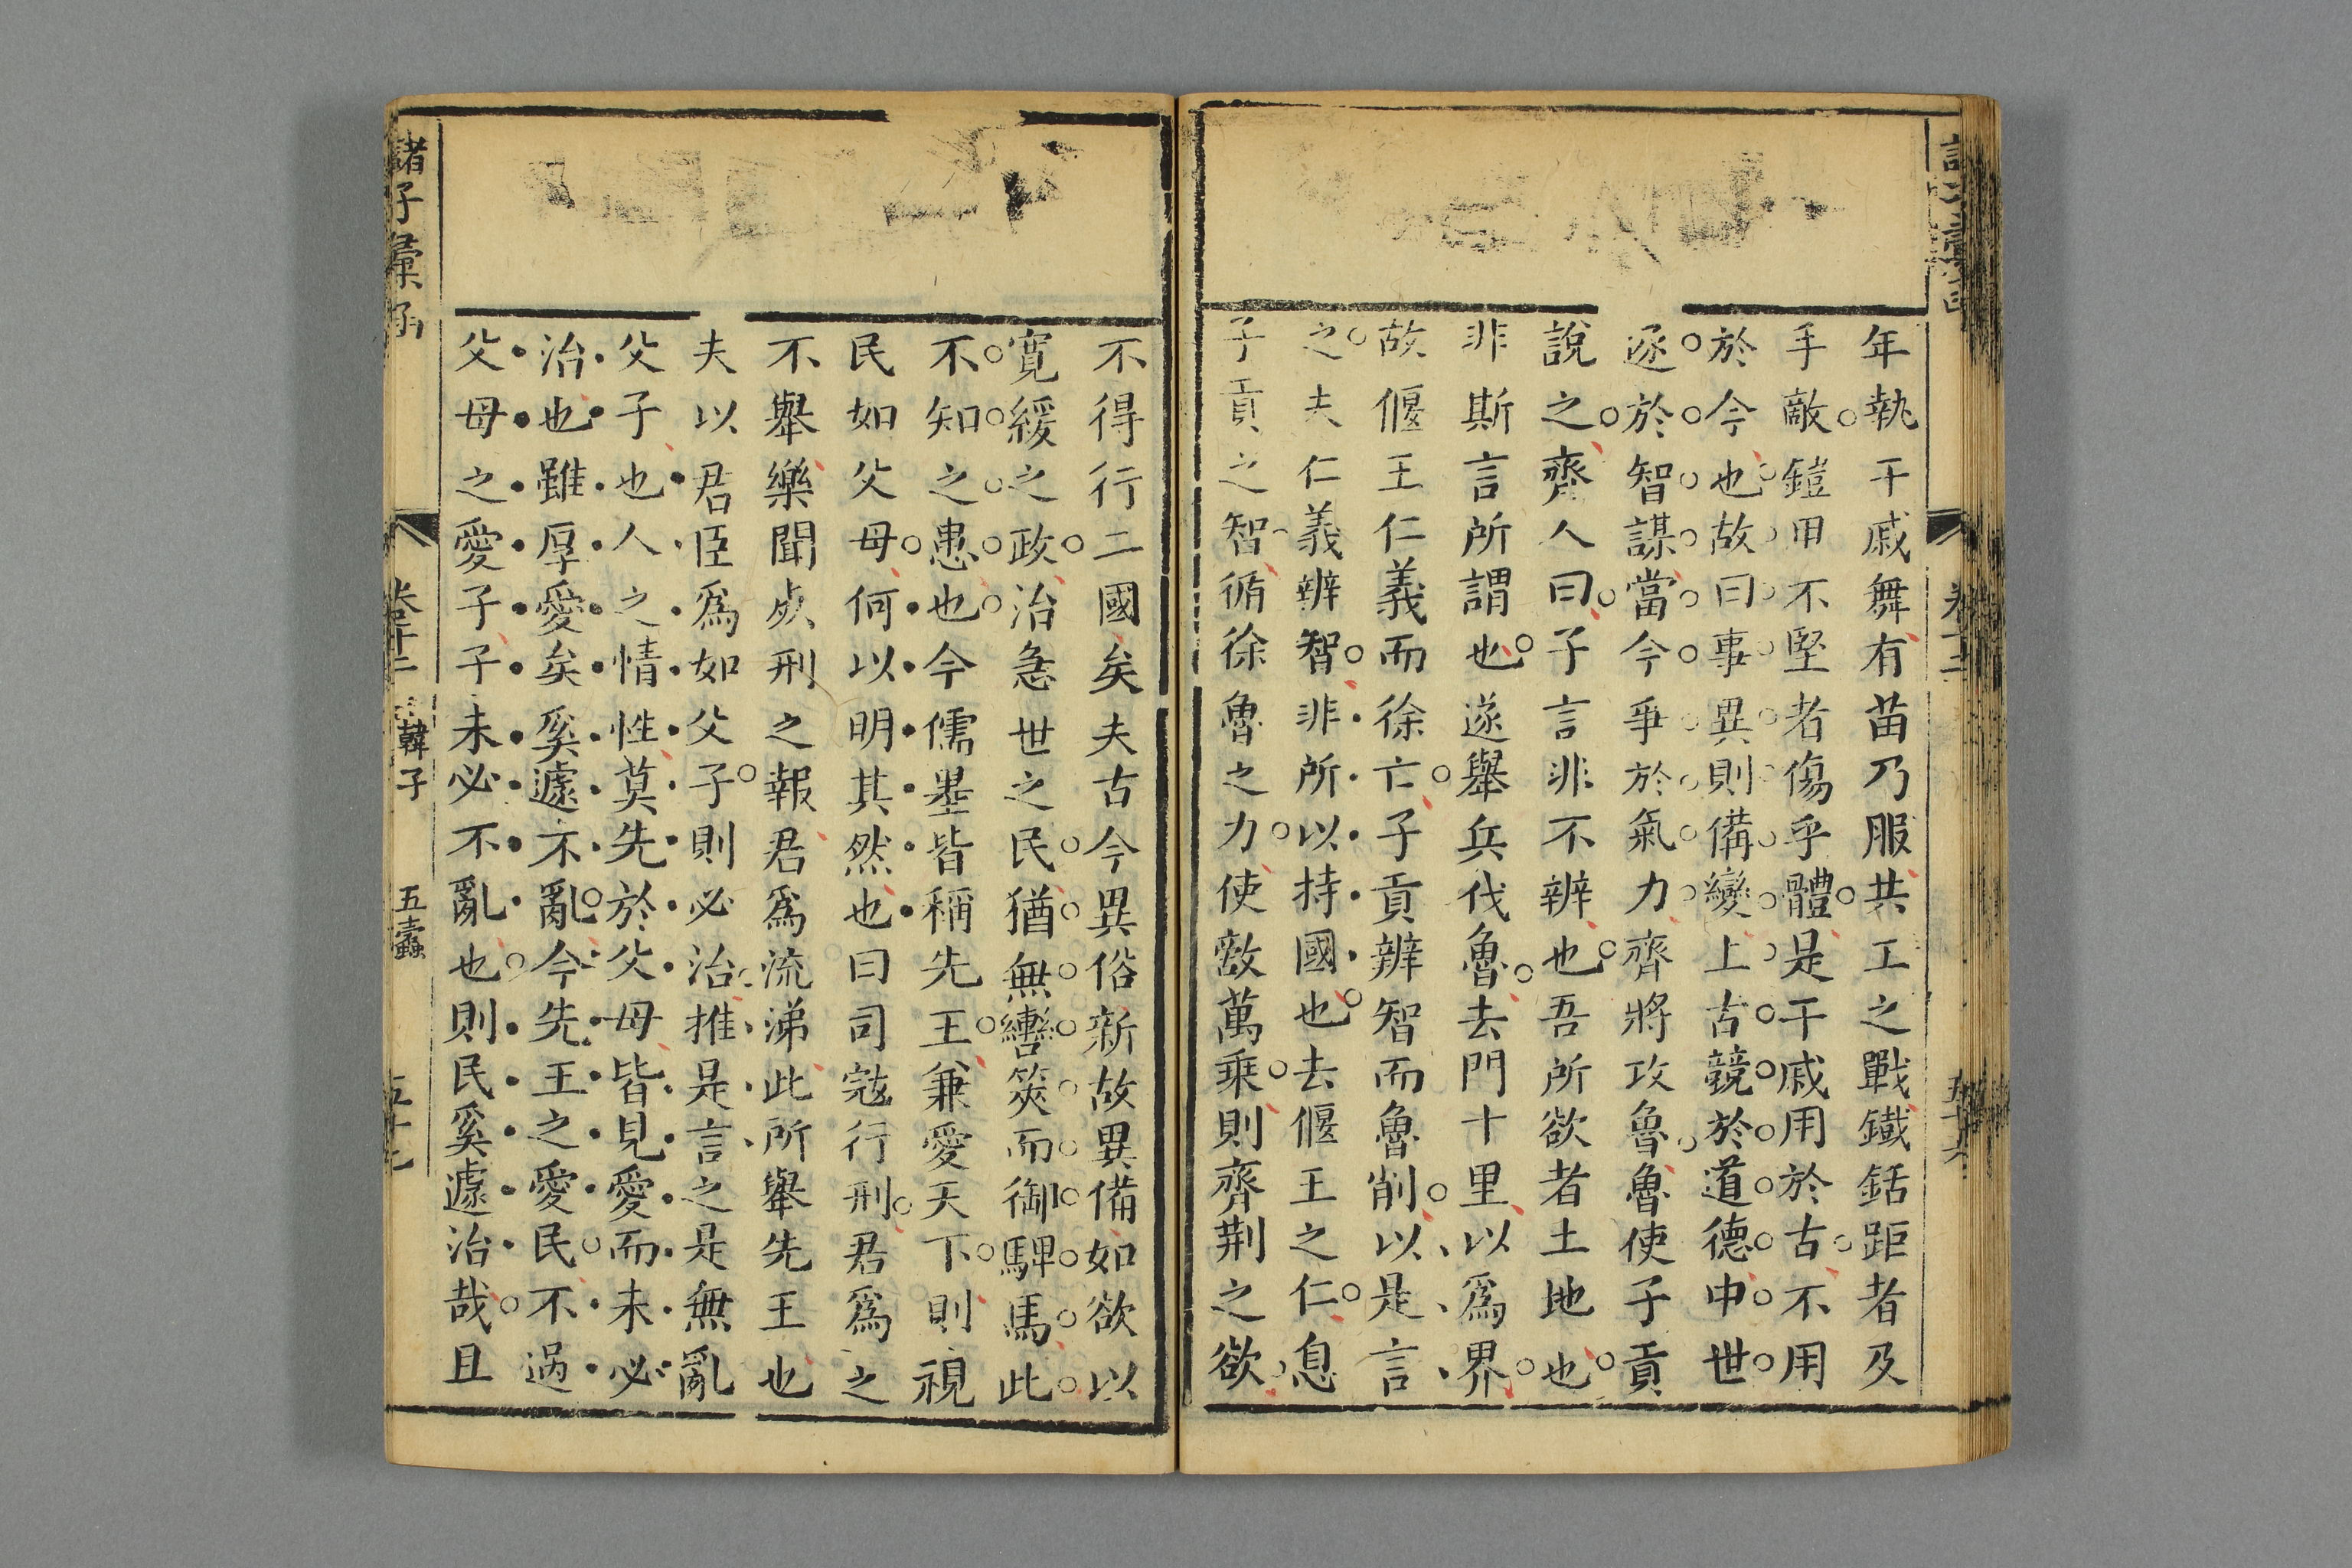 年執干戚舞有苗乃服共工之戰鐵銛距者及
手敵鎧甲不堅者傷乎體是干戚用於古不用
於今也故曰事異則備變上古競於道德中世
逐於智謀當今爭於氣力齊將攻魯魯使子貢
說之齊人曰子言非不辨也吾所欲者土地也
非斯言所謂也遂舉兵伐魯去門十里以爲界
故偃王仁義而徐亡子貢辨智而魯削以是言
之夫仁義辨智非所以持國也去偃王之仁息
子貢之智循徐魯之力使敵萬乘則齊荆之欲
不得行二國矣夫古今異俗新故異備如欲以
寬緩之政治急世之民猶無轡筴而御駻馬此
不知之患也今儒墨皆稱先王兼愛天下則視
民如父母何以明其然也曰司寇行刑君爲之
不舉樂聞死刑之報君爲流涕此所舉先王也
夫以君臣爲如父子則必治推是言之是無亂
父子也人之情性莫先於父母皆見愛而未必
治也雖厚愛矣奚遽不亂今先王之愛民不過
父母之愛子子未必不亂也則民奚遽治哉且
諸子彙函
卷十二
韓子
五蠹
五十七